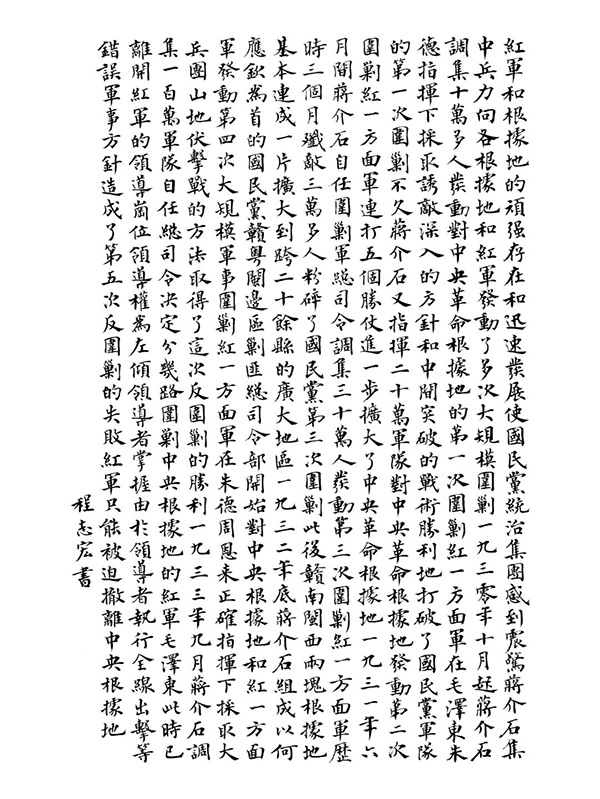 紅軍和根據地的頑强存在和迅速發展使國民黨統治集團感到震驚蔣介石集
中兵力向各根據地和紅軍發動了多次大規模圍剿一九三零年十月起蔣介石
調集十萬多人發動對中央革命根據地的第一次圍剿紅一方面軍在毛澤東朱
德指揮下採取誘敵深入的方針和中間突破的戰術勝利地打破了國民黨軍隊
的第一次圍剿不久蔣介石又指揮二十萬軍隊對中央革命根據地發動第二次
圍剿紅一方面軍連打五個勝仗進一步擴大了中央革命根據地一九三一年六
月間蔣介石自任圍剿軍總司令調集三十萬人發動第三次圍剿紅一方面軍歷
時三個月殲敵三萬多人粉碎了國民黨第三次圍剿此後贛南閩西兩塊根據地
基本連成一片擴大到跨二十餘縣的廣大地區一九三二年底蔣介石組成以何
應欽為首的國民黨贛粵閩邊區剿匪總司令部開始對中央根據地和紅一方面
軍發動第四次大規模軍事圍剿紅一方面軍在朱德周恩来正確指揮下採取大
兵團山地伏擊戰的方法取得了這次反圍剿的勝利一九三三年九月蔣介石調
集一百萬軍隊自任總司令决定分幾路圍剿中央根據地的紅軍毛澤東此時已
離開紅軍的領導崗位領導權為左傾領導者掌握由於領導者執行全線出擊等
錯誤軍事方針造成了第五次反圍剿的失敗紅軍只能被迫撤離中央根據地
程志宏書